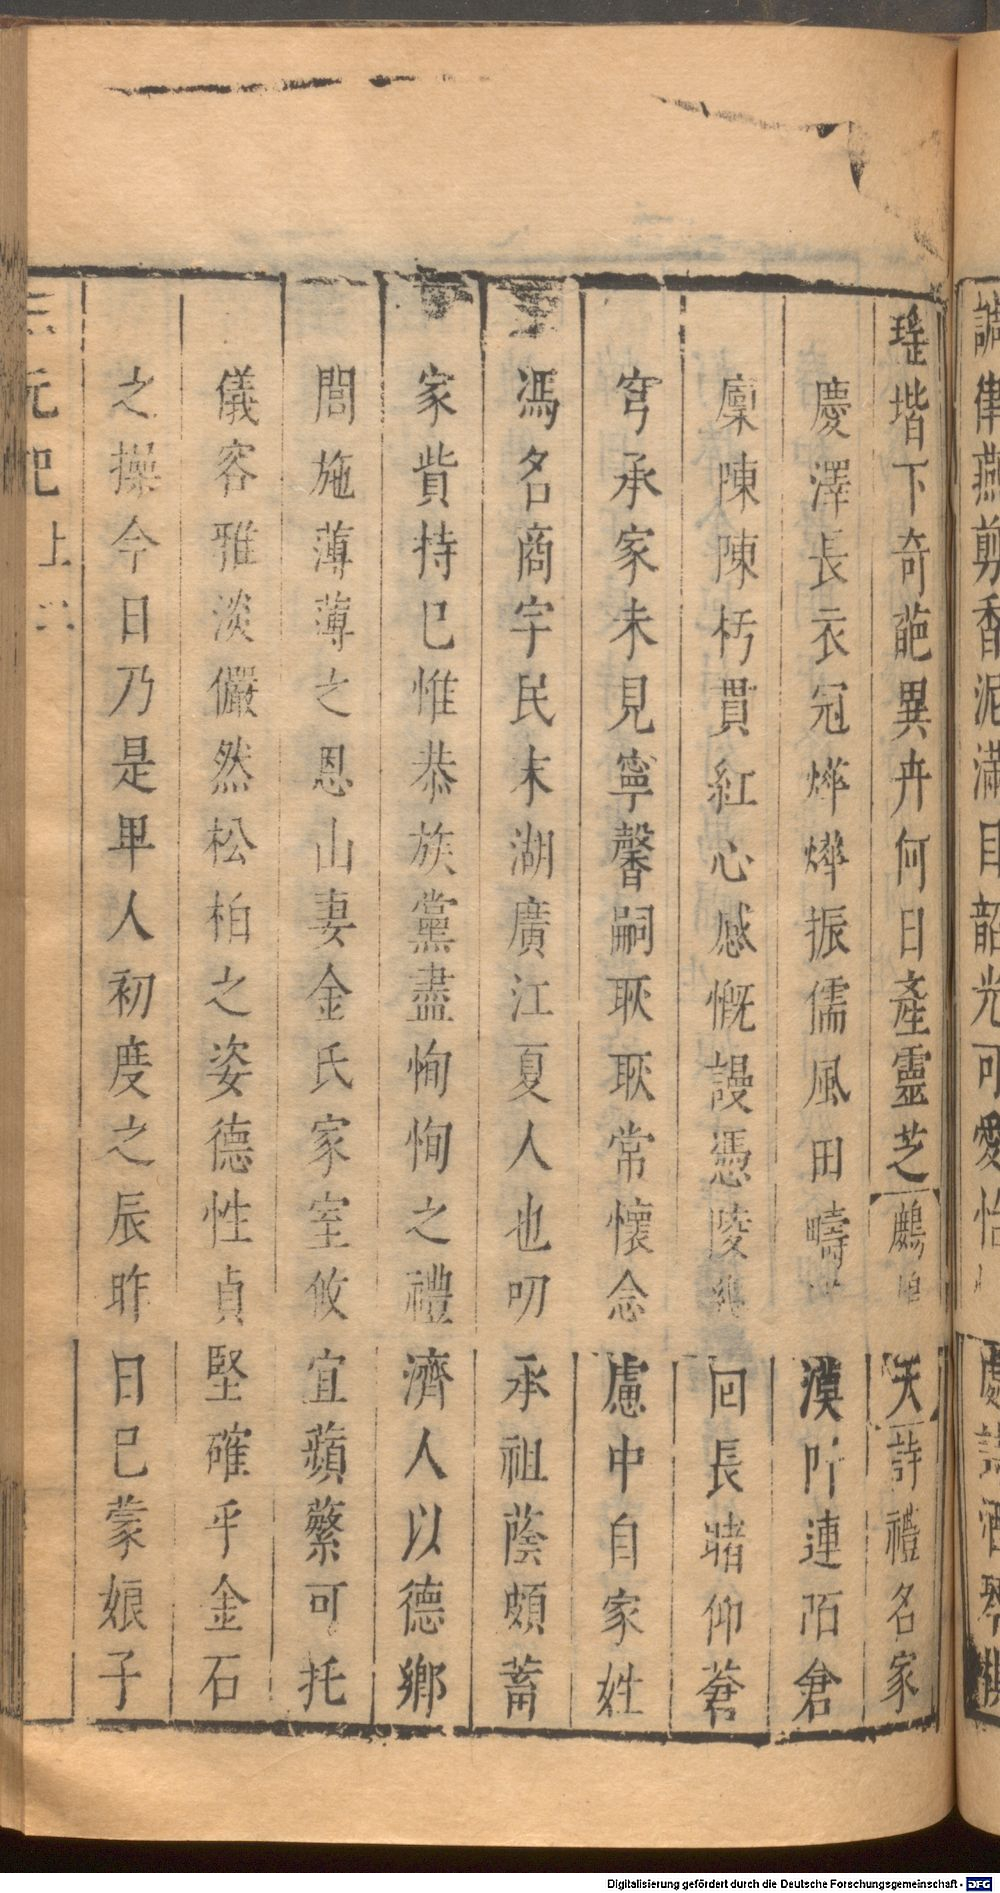 瑤堦下奇葩異卉何日產靈芝鷓鴣天詩禮名家
慶澤長衣冠燁燁振儒風田疇漠阡連陌倉
廩陳陳朽貫紅心感慨謾憑陵回長睹仰蒼
穹承家未見寧馨嗣耿耿常懷念慮中自家姓
馮名商字民末湖廣江夏人也叨承祖蔭頗蓄
家貲持己惟恭族黨盡恂恂之禮濟人以德鄉
閭施薄薄之恩山妻金氏家室攸宜蘋蘩可托
儀容雅淡儼然松柏之姿德性貞堅確乎金石
之操今日乃是卑人初度之辰昨日已蒙娘子
三元 上
燕剪香泥滿目韶光可愛
Digitalisierung gefördert durch die Deutsche Forschungsgemeinschaft - DFG